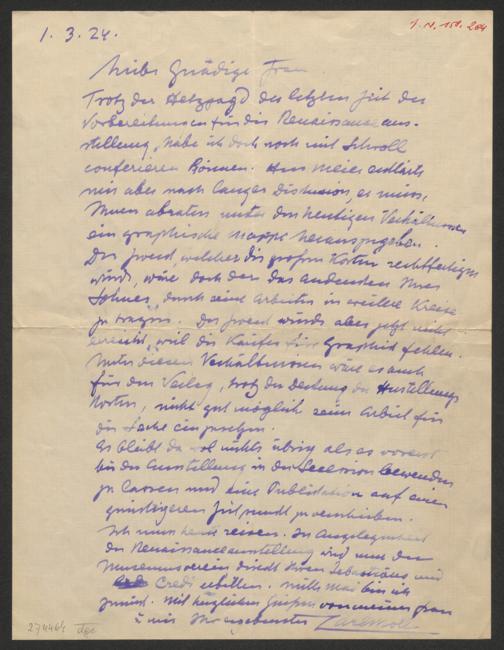 1.3.24.
J.N. 151.264
Liebe Gnädige Frau
Trotz der Hetzjagd der letzten Zeit der
Vorbereitungen für die Renaissanceaus-
stellung, habe ich doch noch mit Schroll
conferieren können. Herr Meier erklärte
mir aber nach langer Diskussion, er müsse
Ihnen abraten unter den heutigen Verhältnissen
ein graphische Mappe herauszugeben.
Der Zweck, welcher die grossen Kosten rechtfertigen
würde, wäre doch der das Andenken Ihres
Sohnes, durch seine Arbeiten in weitere Kreise
zu tragen. Der Zweck würde aber jetzt nicht
erreicht, weil die Käufer für Graphik fehlen.
Unter diesen Verhältnissen wäre es auch
für den Verlag, trotz der Deckung der Herstellungs
kosten, nicht gut möglich seine Arbeit für
die Sache einzusetzen.
Es bleibt da wol nichts übrig als es vorerst
bei der Ausstellung in der Secession bewenden
zu lassen und eine Publikation auf einen
günstigeren Zeitpunkt zu verschieben.
Ich muss heute reisen. In Angelegenheit
der Renaissanceausstellung wird nun der
Museumsverein direkt Ihren Sebastiano und
Credi erbitten. Mitte Mai bin ich
zurück. Mit herzlichen Grüssen von meiner Frau
u mir Ihr ergebenster Carl Moll
274464